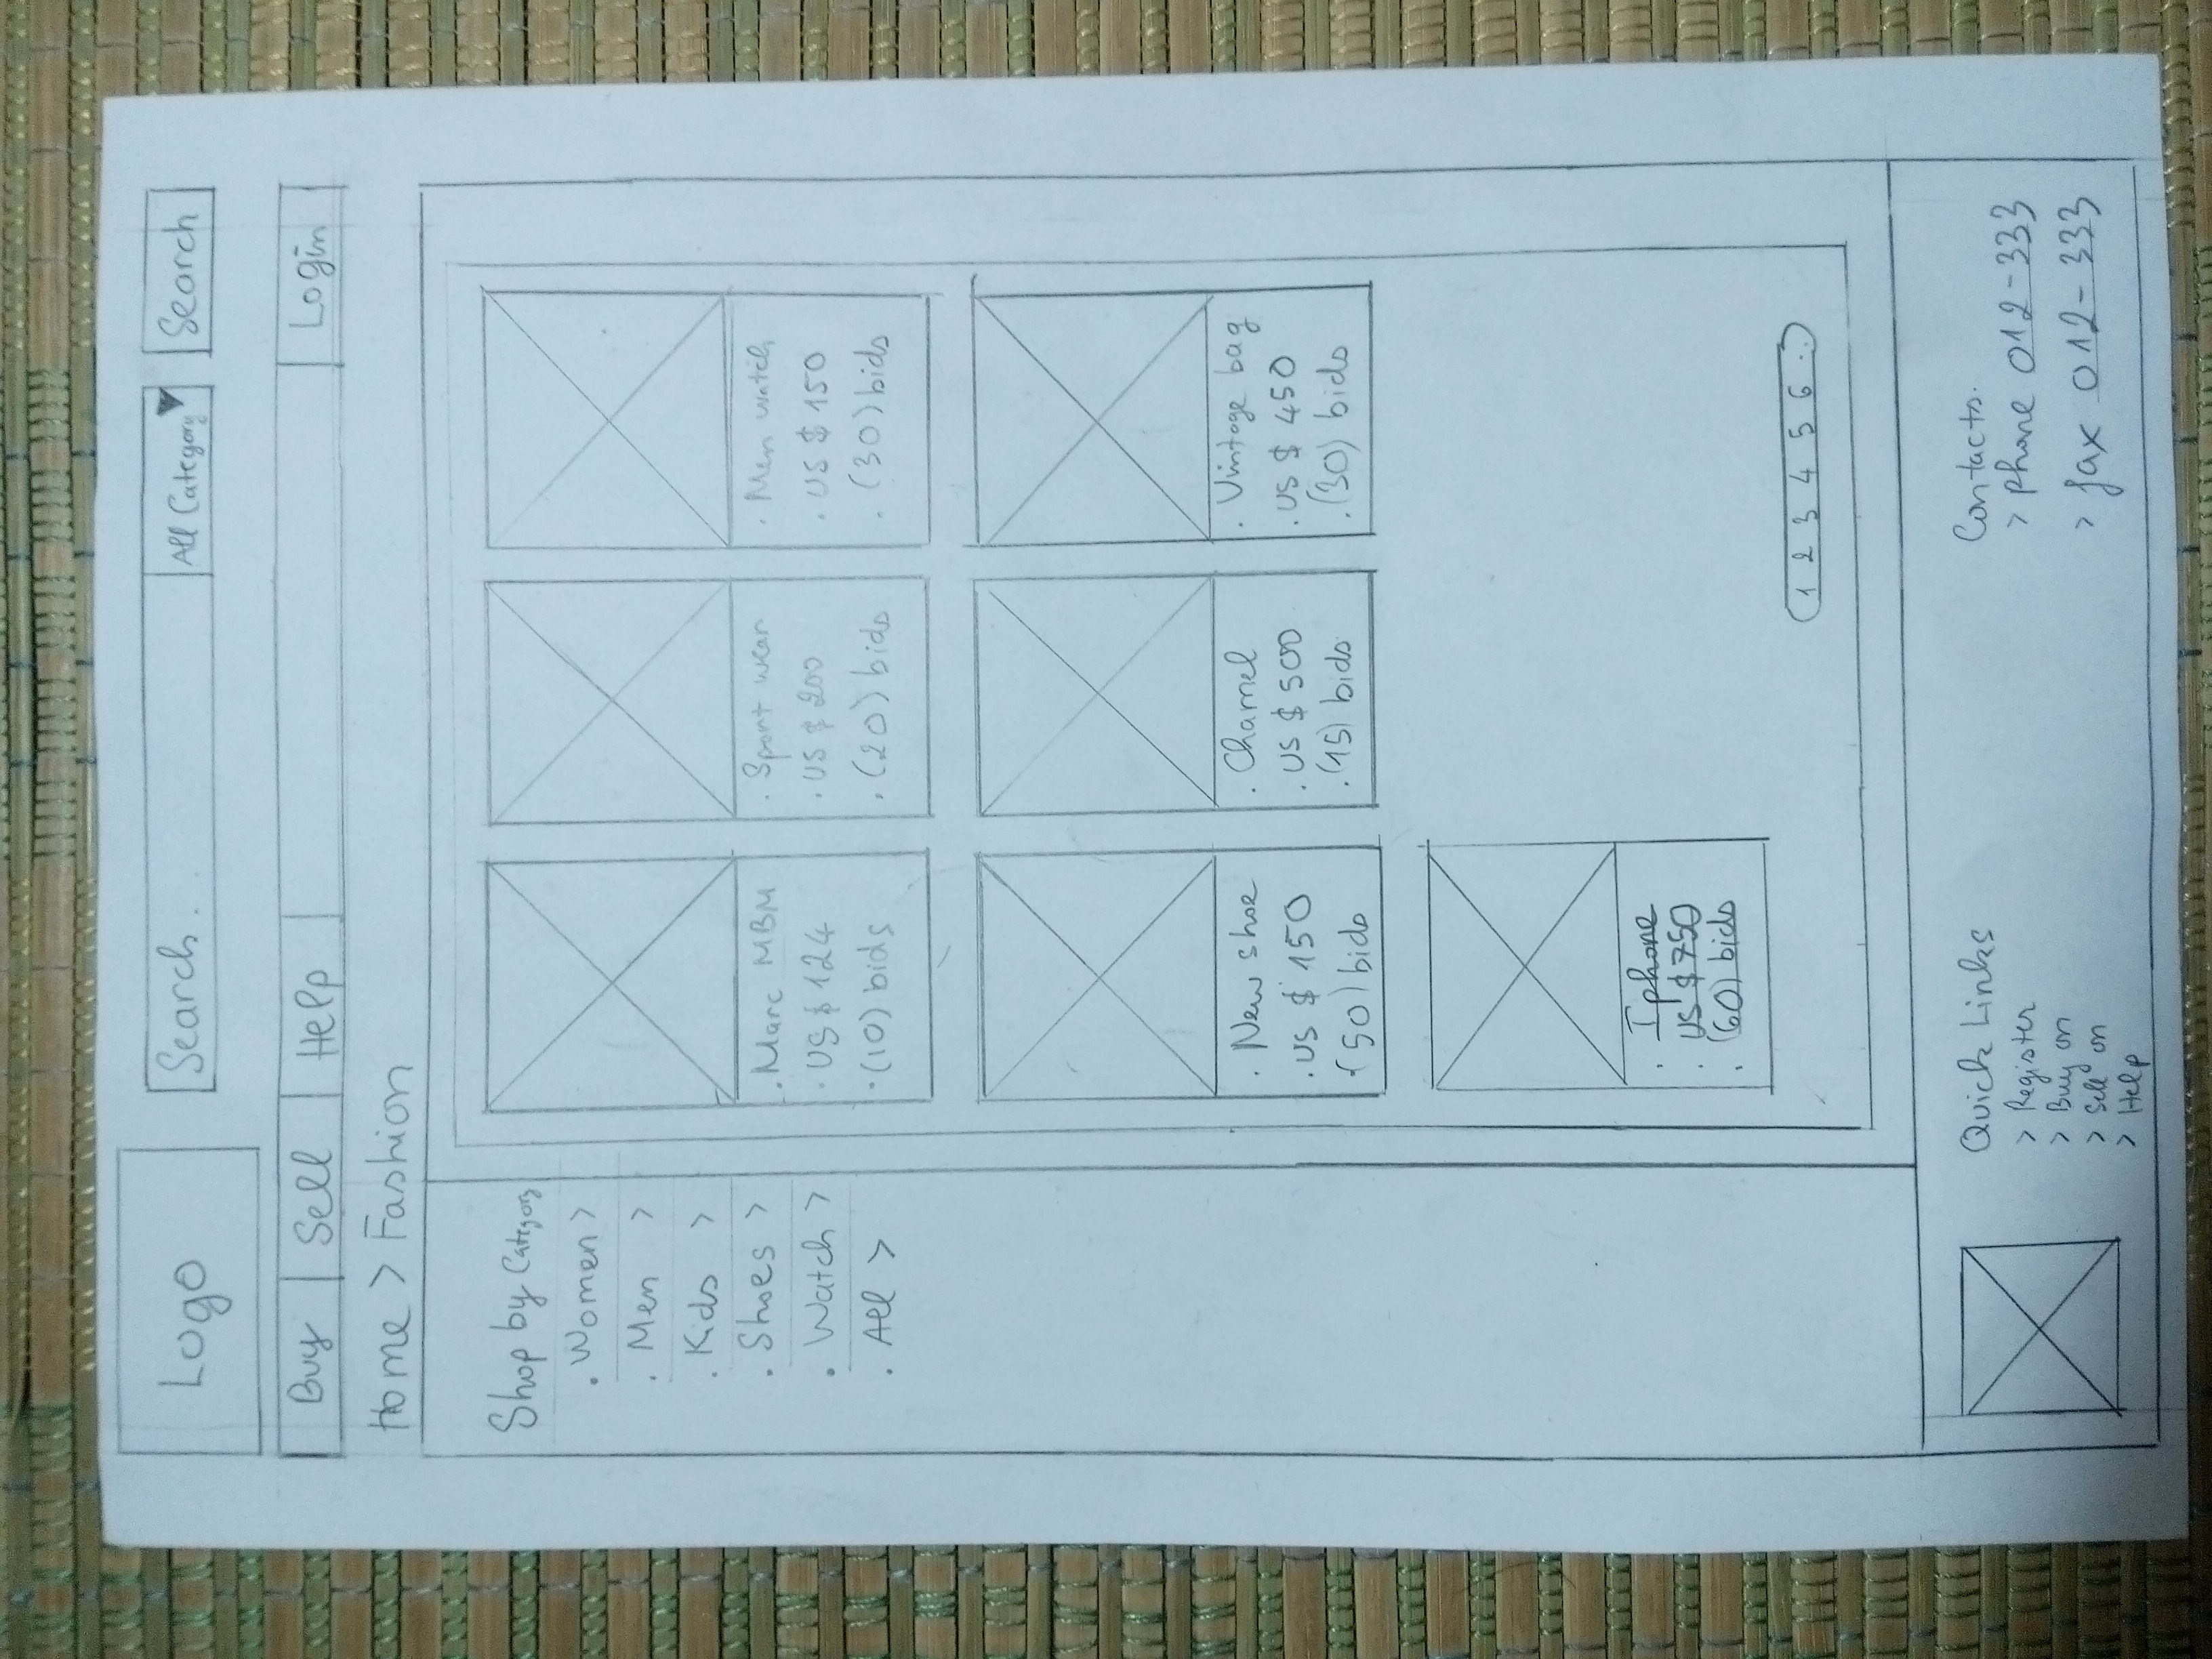 Logo
Search..
All Category
Search
Buy Sell Help Login
Home > Fashion
Shop by Category
. Women >
. Men >
. Kids >
. Shoes >
. Watch >
. All >
. Marc MBM
. US $ 124
. (10) bids
. Sport wear
. US $ 200
. (20) bids
. Men watch
. US $ 150
. (30) bids
. New shoe
. US $ 150
. (50) bids
. Channel
. US $ 500
. (15) bids
. Vintage bag
. US $ 450
. (30) bids
. Iphone
. US $ 750
. (60) bids
1 2 3 4 5 6 ..
Quick Links
> Register
> Buy on
> Sell on
> Help
Contacts.
> phone 012-333
> fax 012-333